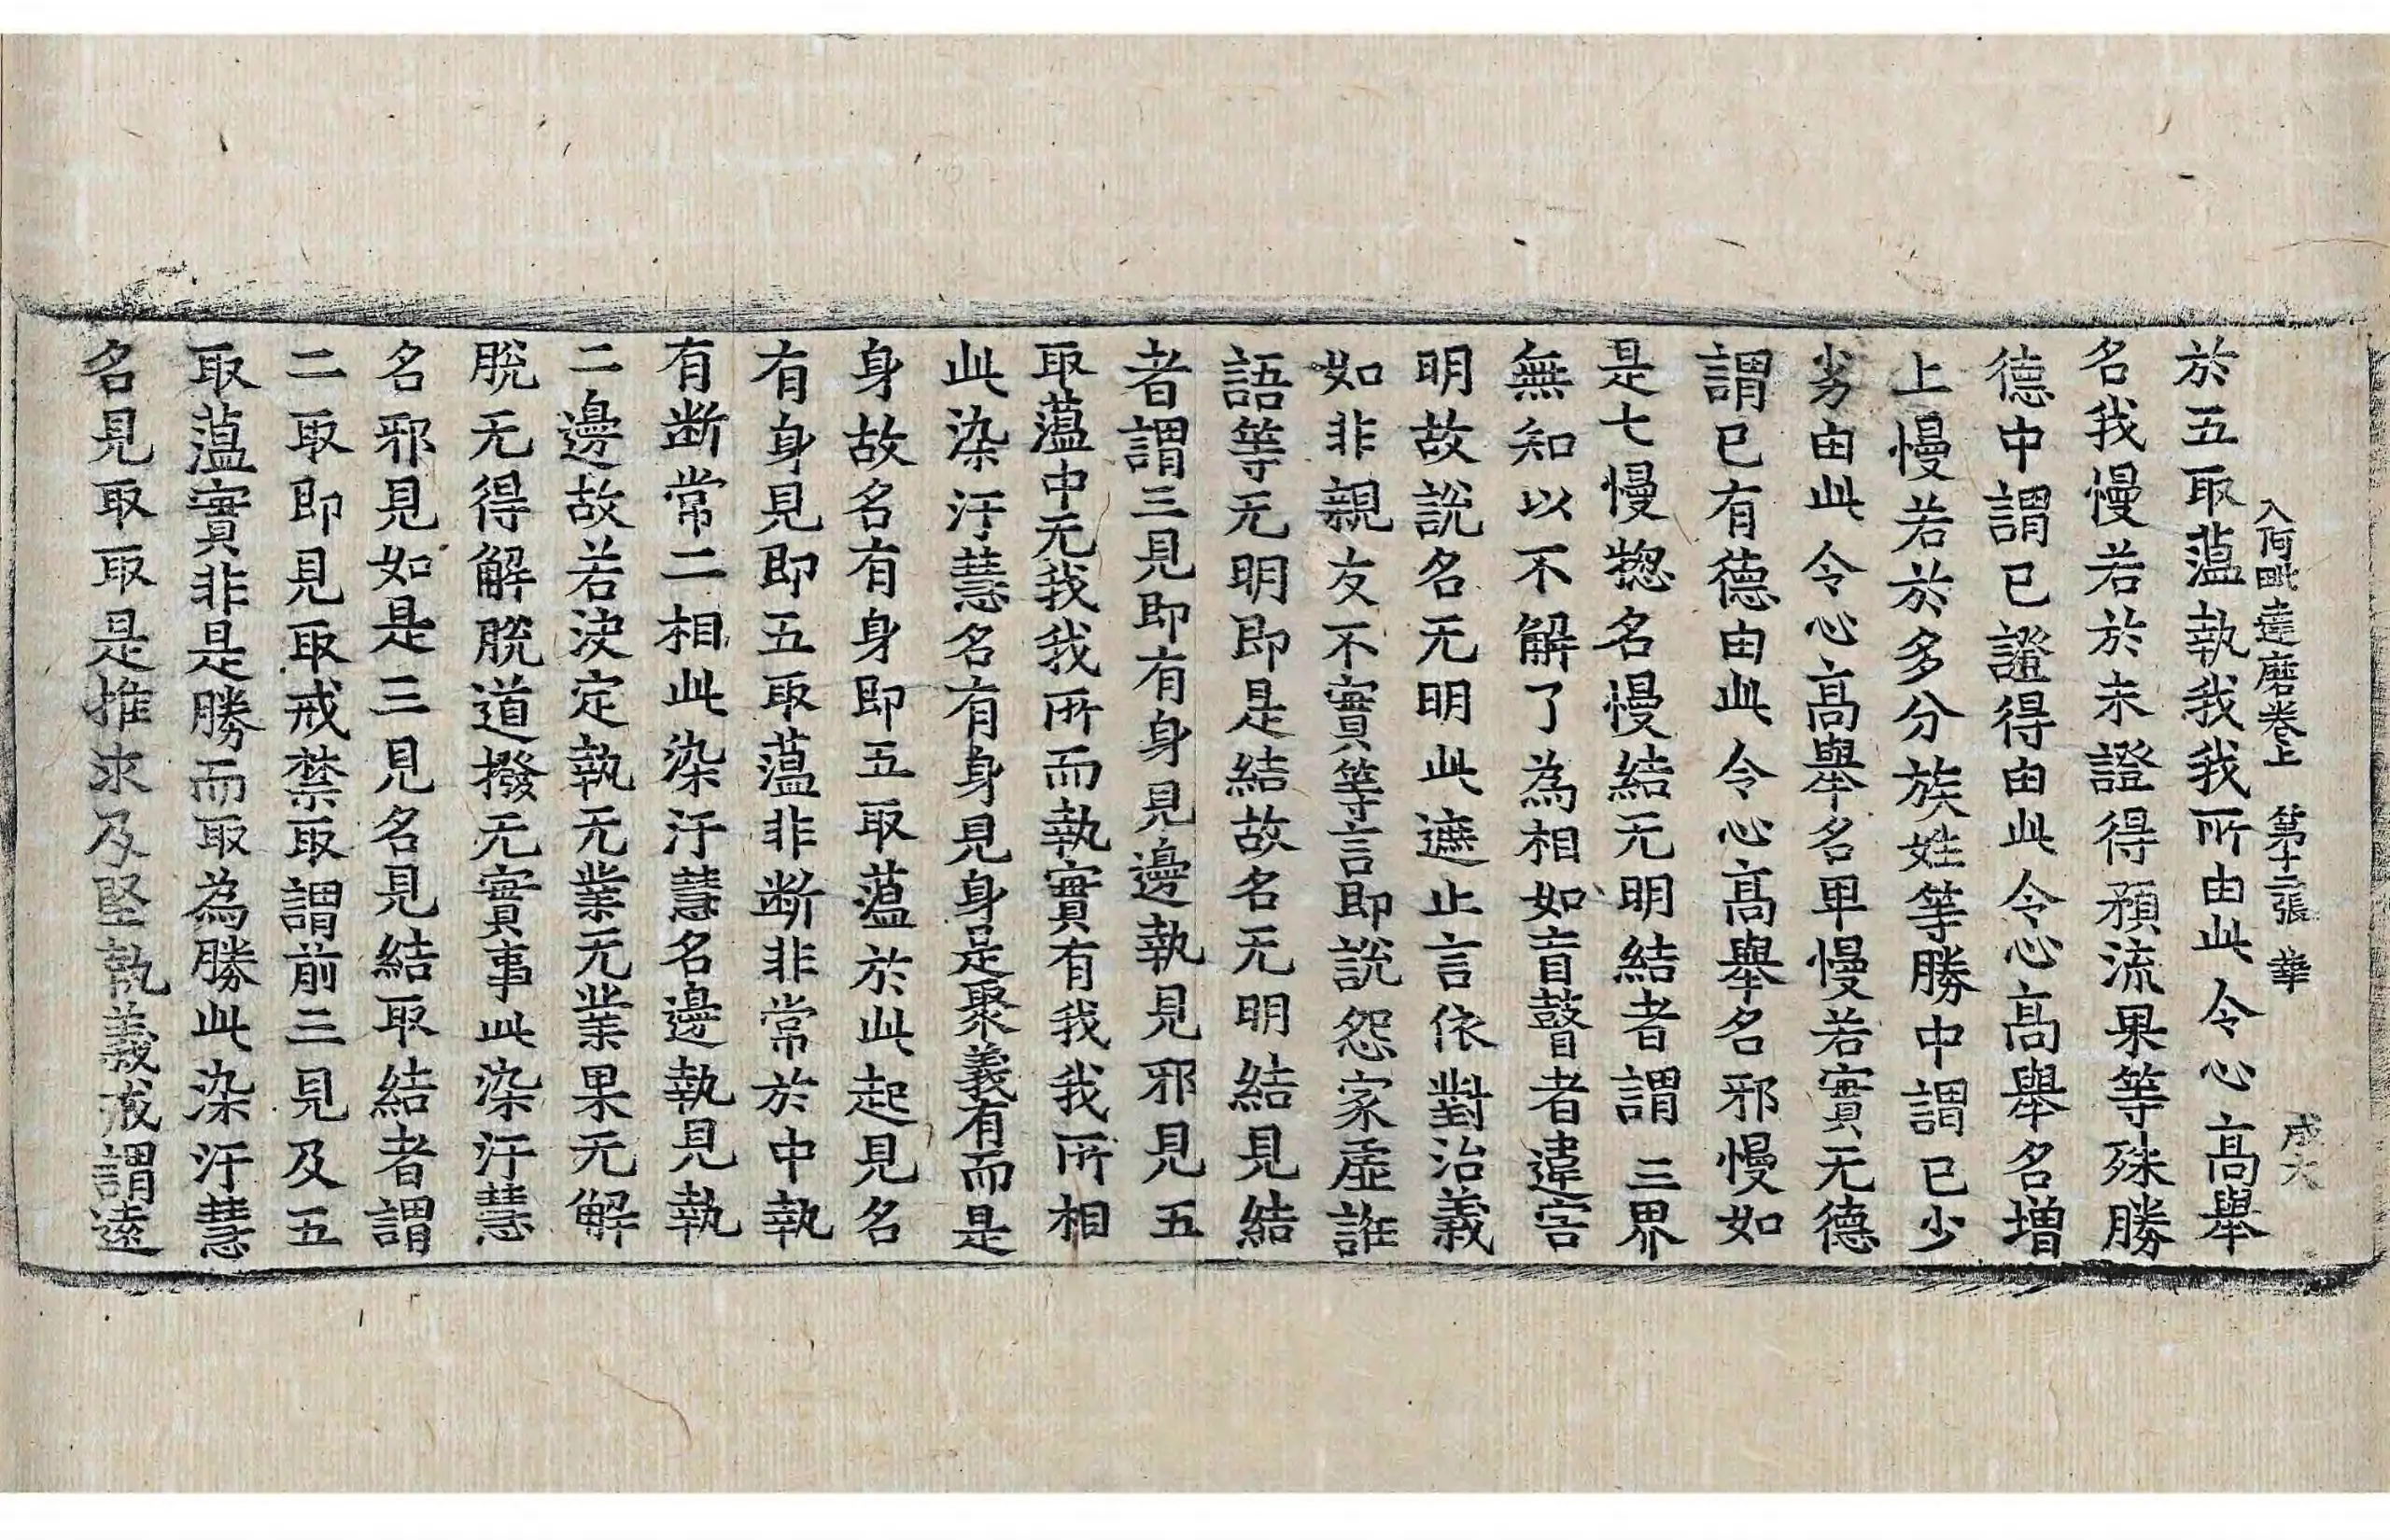 入阿毗達磨卷上 第十二張 華 成大
於五取薀執我我所由此令心高舉
名我慢若於未證得預流果等殊勝
德中謂已證得由此令心高舉名增
上慢若於多分族姓等勝中謂已少
劣由此令心高舉名卑慢若實无德
謂已有德由此令心高舉名邪慢如
是七慢揔名慢結无明結者謂三界
無知以不解了為相如盲瞽者違害
明故說名无明此遮止言依對治義
如非親友不實等言即說怨家虛誑
語等无明即是結故名无明結見結
者謂三見即有身見邊執見邪見五
取薀中无我我所而執實有我我所相
此染汙慧名有身見身是聚義有而是
身故名有身即五取薀於此起見名
有身見即五取薀非斷非常於中執
有断常二相此染汙慧名邊執見執
二邊故若決定執无業无業果无解
脫无得解脫道撥无實事此染汙慧
名邪見如是三見名見結取結者謂
二取即見取戒禁取謂前三見及五
取薀實非是勝而取為勝此染汙慧
名見取取是推求及堅執義戒謂遠